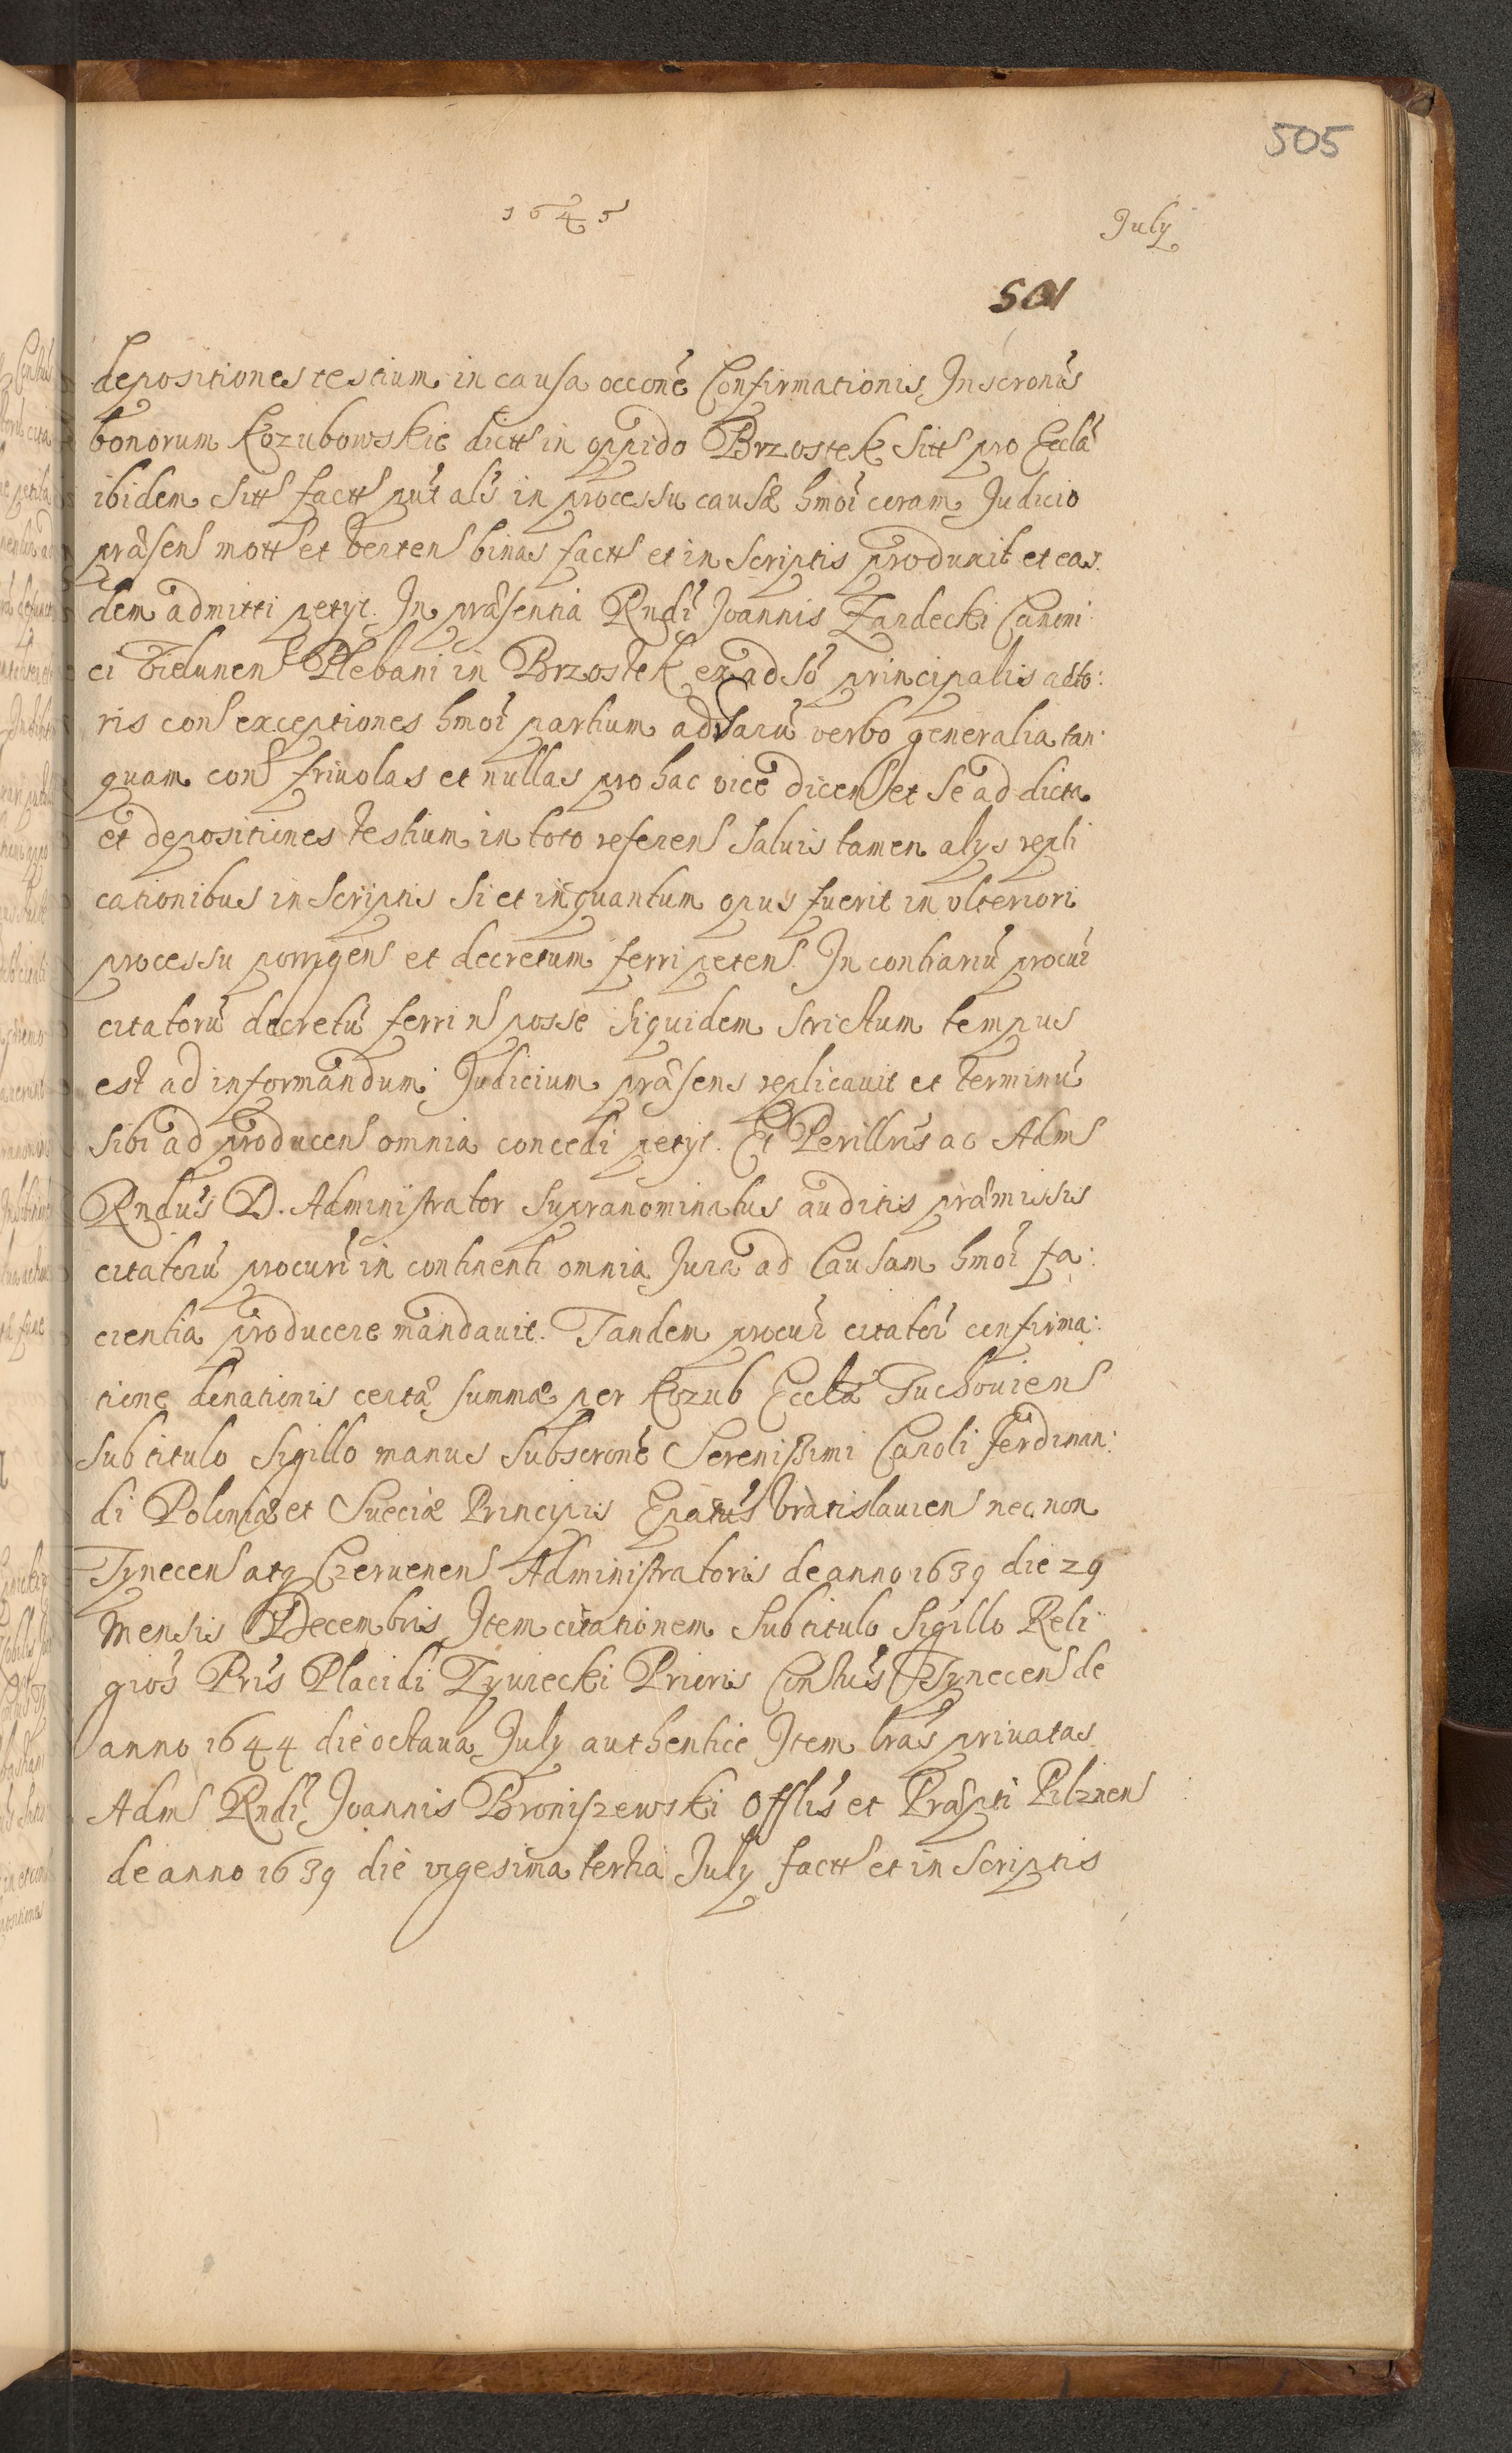 505
1645
July
501
depositiones testium in causa occone Confirmationis Inscronis
bonorum Kozubowskie dict in oppido Brzostek Sitt pro Eccla
ibidem Sitt fact put als in processu causæ hmoi coram Judicio
præsen mott et verten binas fact et in Scriptis produxit et eas
dem admitti petyt. In præsentia Rndi Joannis Zardecki Canoni
ci Vielunen Plebani in Brzostek ex adso principalis acto:
ris con exceptiones hmoi partium adsaru verbo generalia tan:
quam con friuolas et nullas pro hac vice dicen et Se ad dicta
et depositiones testium in toto referen Saluis tamen alys repli
cationibus in Scriptis Si et in quantum opus fuerit in vlteriori
processu porrigen et decretum ferri peten In contrariu procur
citatoru decretu ferri n posse Siquidem Strictum tempus
est ad informandum Judicium præsens replicauit et terminu
Sibi ad producen omnia concedi petyt. Et Perillris ac Adm
Rndus D. Administrator Supranominatus auditis præmissis
citatoru procuri in continenti omnia Jura ad Causam hmoi fa:
cientia producere mandauit. Tandem procur citator confirma:
tione donationis certæ Summæ per Kozub Eccla Tuchouien
Sub titulo Sigillo manus Subscrone Serenissimi Caroli Ferdinan:
di Poloniæ et Sueciæ Principis Epatus Vratislauien nec non
Tynecen atq Czeruenen Administratoris de anno 1639 die 29
Mensis Decembris Item citationem Sub titulo Sigillo Reli
gios Pris Placidi Zyuiecki Prioris Conltus Tynecen de
anno 1644 die octaua July authentice Item lras priuatas
Adm Rndi Joannis Broniszewski Offlis et Præpti Pilznen
de anno 1639 die vigesima tertia July fact et in Scriptis